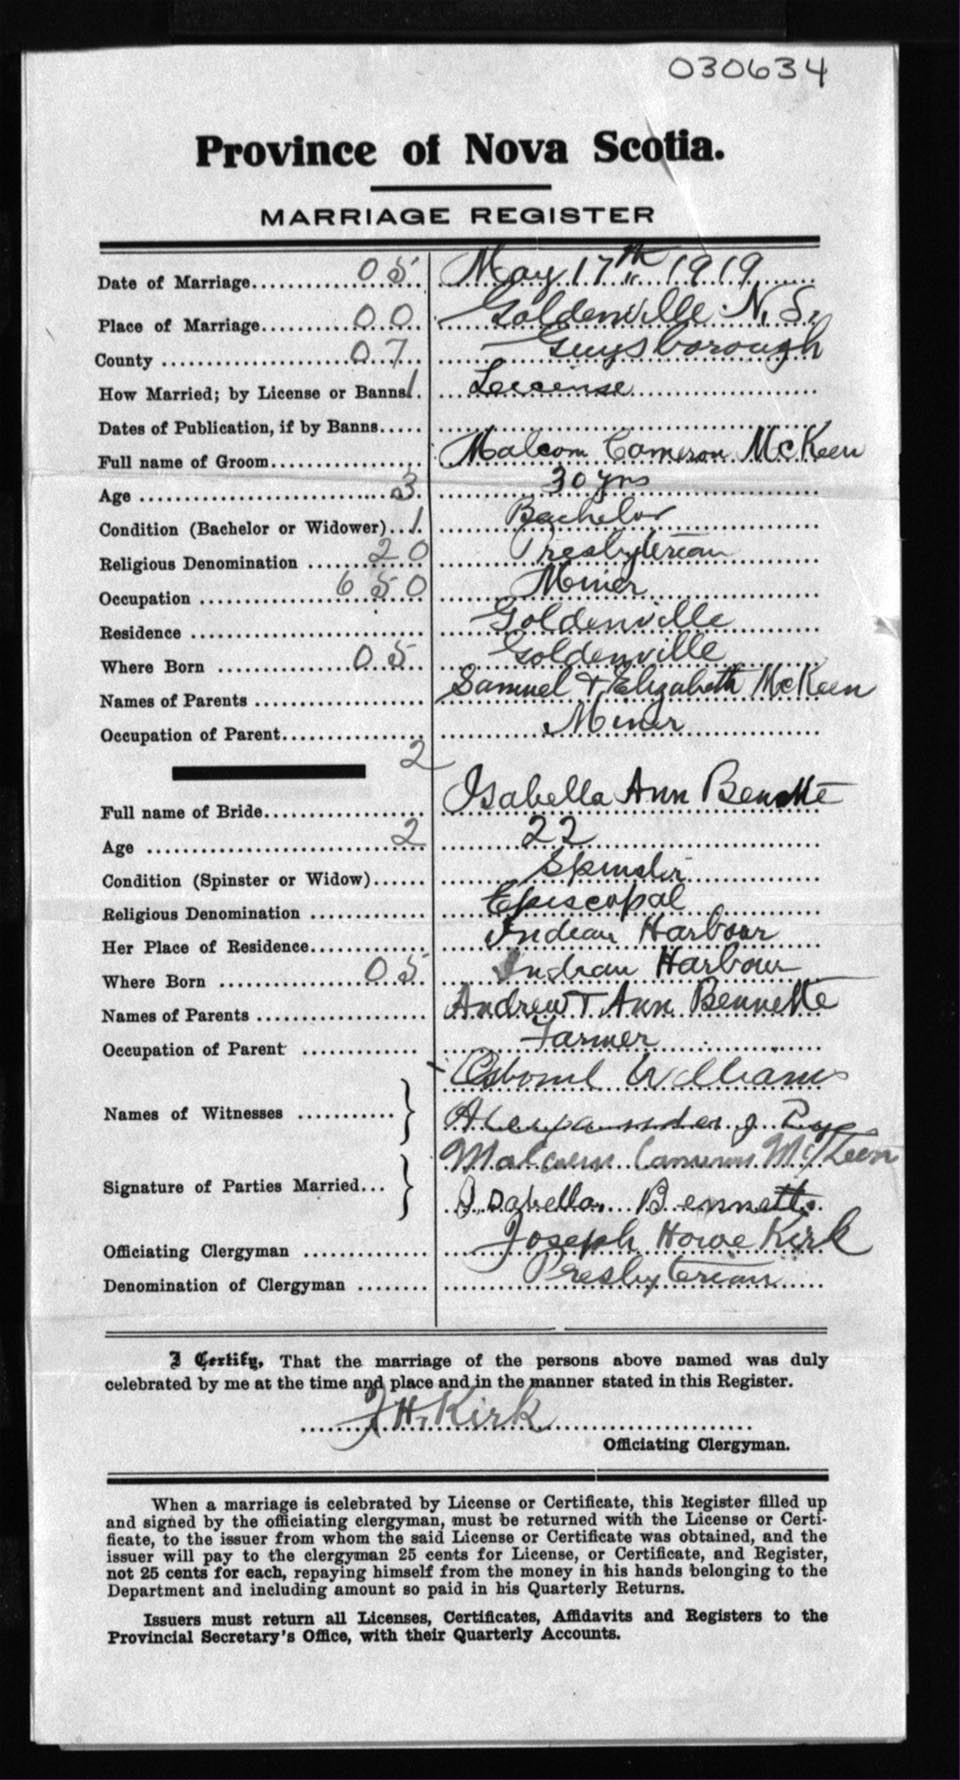 030634
Province of Nova Scotia.
MARRIAGE REGISTER
Date of Marriage 05 May 17th 1919
Place of Marriage 00 Goldenville N.S.
County 07 Guysborough
How Married; by License or Banns 1 Liscense
Dates of Publication, if by Banns
Full name of Groom Malcom Cameron McKeen
Age 3 30 yrs
Condition (Bachelor or Widower) 1 Bachelor
Religious Denomination 20 Presbyterian
Occupation 650 Miner
Residence Goldenville
Where Born 05 Goldenville
Names of Parents Samuel + Elizabeth McKeen
Occupation of Parent Miner
2
Full name of Bride Isabella Ann Bennette
Age 2 22
Condition (Spinster or Widow) Spinster
Religious Denomination Episcopal
Her Place of Residence Indian Harbour
Where Born 05 Indian Harbour
Names of Parents Andrew + Ann Bennette
Occupation of Parent Farmer
Williams
Names of Witnesses
Alexander J.
Malcolm Cameron McKeen
Signature of Parties Married
Isabella Bennett.
Officiating Clergyman Joseph Howe Kirk
Denomination of Clergyman Presbyterian
I Certify, That the marriage of the persons above named was duly
celebrated by me at the time and place and in the manner stated in this Register.
J.H. Kirk
Officiating Clergyman.
When a marriage is celebrated by License or Certificate, this Register filled up
and signed by the officiating clergyman, must be returned with the License or Certi-
ficate, to the issuer from whom the said License or Certificate was obtained, and the
issuer will pay to the clergyman 25 cents for License, or Certificate, and Register,
not 25 cents for each, repaying himself from the money in his hands belonging to the
Department and including amount so paid in his Quarterly Returns.
Issuers must return all Licenses, Certificates, Affidavits and Registers to the
Provincial Secretary's Office, with their Quarterly Accounts.